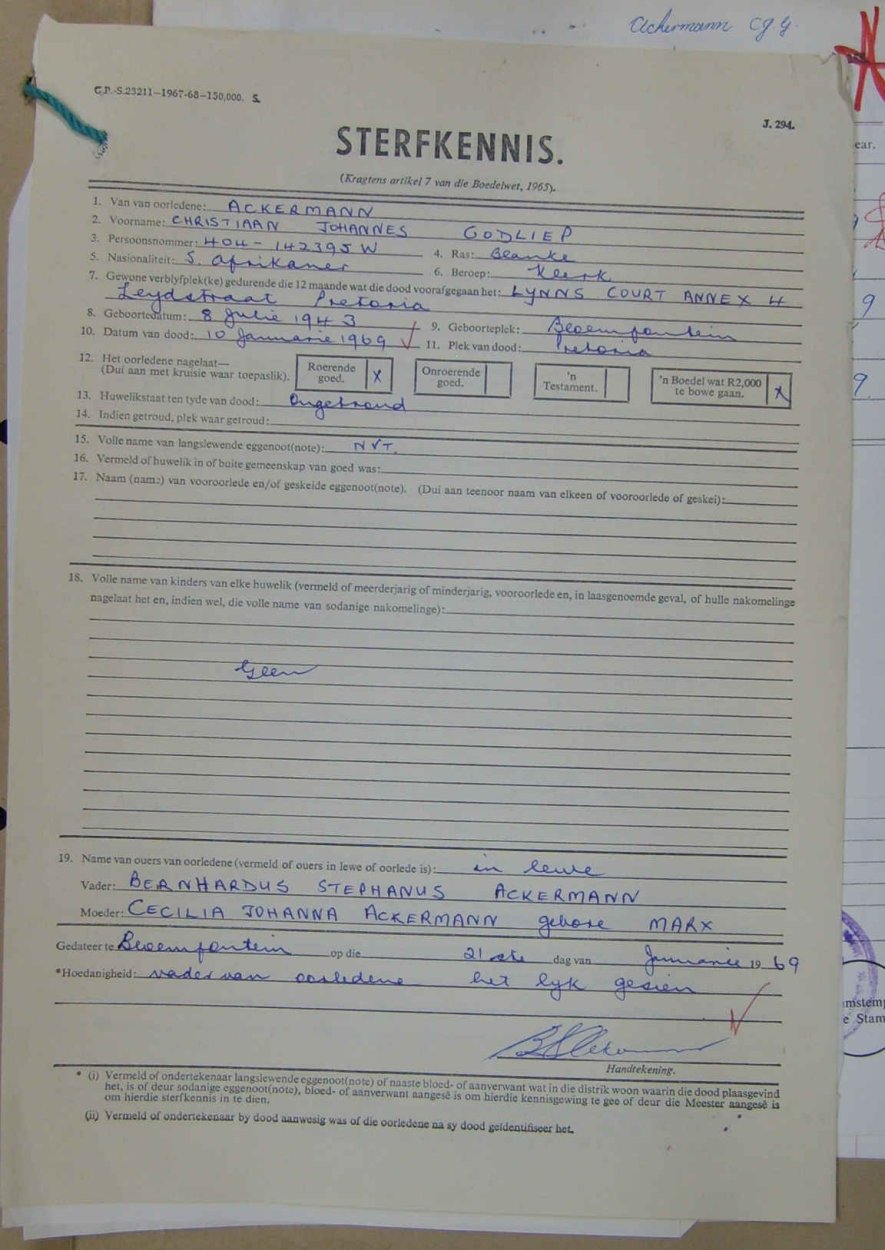 Ackermann C J G
G.P.-S.23211—1967-68—150,000. S.
J. 294.
STERFKENNIS.
(Kragtens artikel 7 van die Boedelwet, 1965).
1. Van van oorledene: ACKERMANN
2. Voorname: CHRISTIAAN JOHANNES GODLIEP
3. Persoonsnommer: 404-142395W 4. Ras: Blanke
5. Nasionaliteit: S. Afrikaner 6. Beroep: Klerk
7. Gewone verblyfplek(ke) gedurende die 12 maande wat die dood voorafgegaan het: LYNNS COURT ANNEX 4
Leydstraat Pretoria
8. Geboortedatum: 8 Julie 1943 9. Geboorteplek: Bloemfontein
10. Datum van dood: 10 Januarie 1969 11. Plek van dood: Pretoria
12. Het oorledene nagelaat—
(Dui aan met kruisie waar toepaslik). Roerende goed. X Onroerende goed. 'n Testament. 'n Boedel wat R2,000 te bowe gaan. X
13. Huwelikstaat ten tyde van dood: Ongetroud
14. Indien getroud, plek waar getroud:
15. Volle name van langslewende eggenoot(note): NVT.
16. Vermeld of huwelik in of buite gemeenskap van goed was:
17. Naam (name) van vooroorlede en/of geskeide eggenoot(note). (Dui aan teenoor naam van elkeen of vooroorlede of geskei):
18. Volle name van kinders van elke huwelik (vermeld of meerderjarig of minderjarig, vooroorlede en, in laasgenoemde geval, of hulle nakomelinge
nagelaat het en, indien wel, die volle name van sodanige nakomelinge):
Geen
19. Name van ouers van oorledene (vermeld of ouers in lewe of oorlede is): in lewe
Vader: BERNHARDUS STEPHANUS ACKERMANN
Moeder: CECILIA JOHANNA ACKERMANN gebore MARX
Gedateer te Bloemfontein op die 21ste dag van Januarie 1969
*Hoedanigheid: vader van oorledene het lyk gesien
Handtekening.
* (i) Vermeld of ondertekenaar langslewende eggenoot(note) of naaste bloed- of aanverwant wat in die distrik woon waarin die dood plaasgevind
het, is of deur sodanige eggenoot(note), bloed- of aanverwant aangesê is om hierdie kennisgewing te gee of deur die Meester aangesê is
om hierdie sterfkennis in te dien.
(ii) Vermeld of ondertekenaar by dood aanwesig was of die oorledene na sy dood geïdentifiseer het.
ear.
9
9